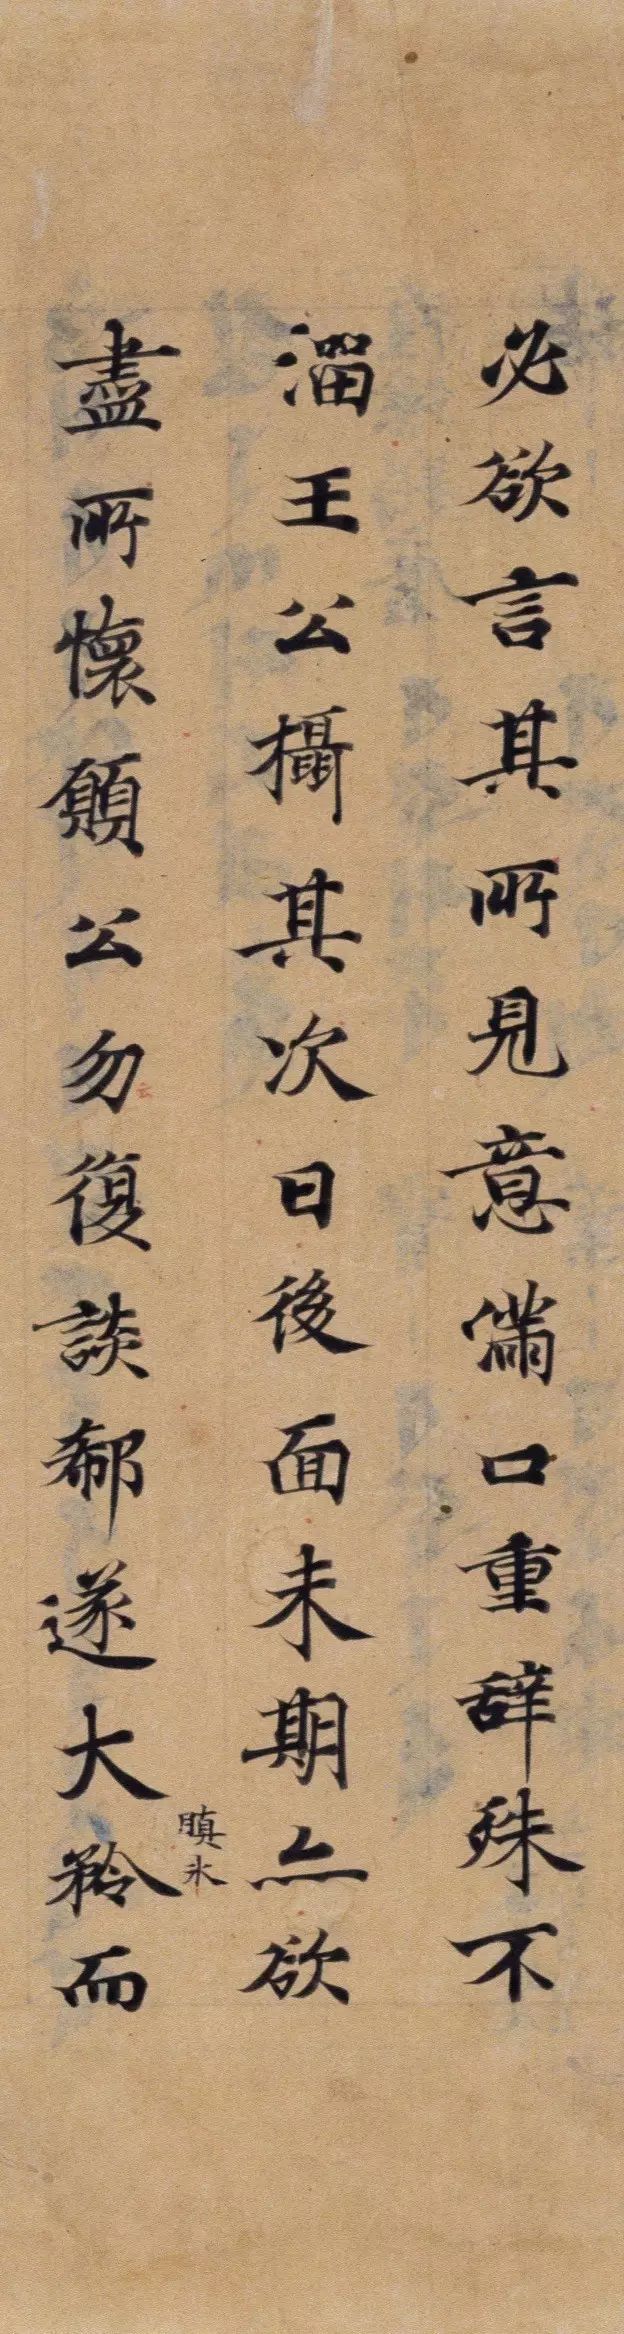 必欲言其所見意滿口重辞殊不
溜王公攝其次日後面未期亦欲
盡所懷願公勿復談郗遂大矜而
瞋氷